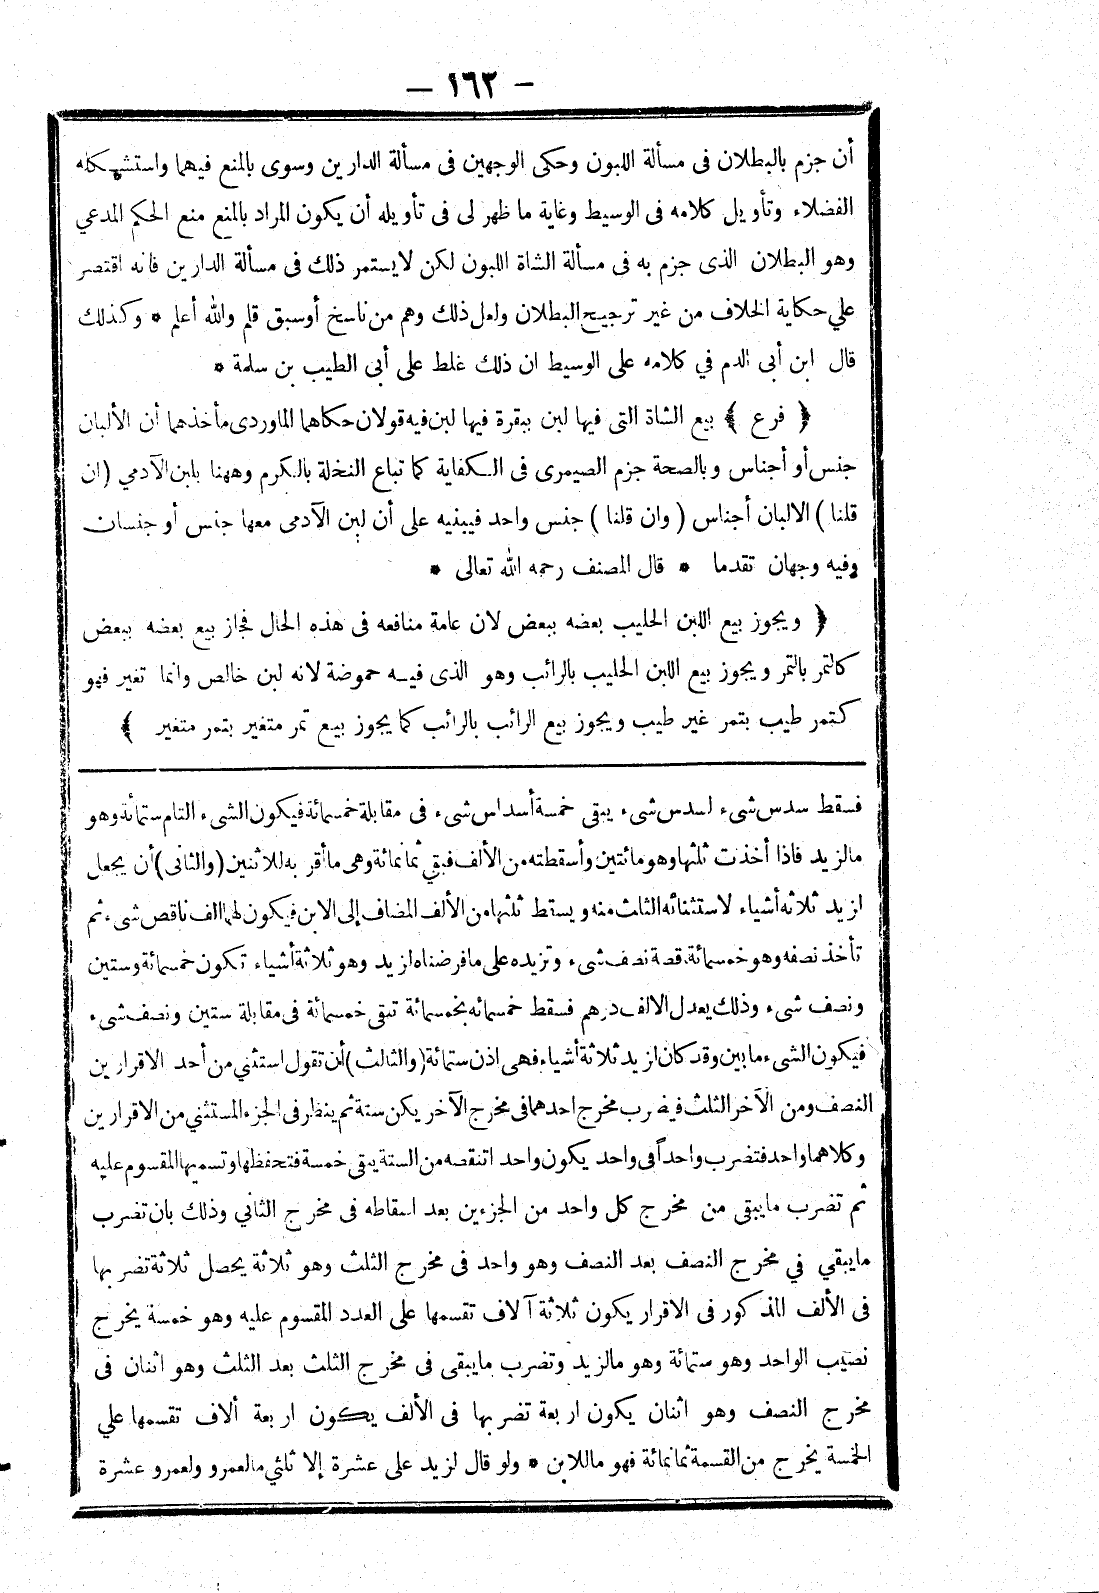 — ١٦٢ —
أن جزم بالبطلان فى مسألة اللبون وحكى الوجهين فى مسألة الدارين وسوى بالمنع فيهما واستشكله
الفضلاء وتأويل كلامه فى الوسيط وغاية ما ظهر لى فى تأويله أن يكون المراد بالمنع منع الحكم المدعي
وهو البطلان الذى جزم به فى مسألة الشاة اللبون لكن لا يستمر ذلك فى مسألة الدارين فانه اقتصر
علي حكاية الخلاف من غير ترجيح البطلان ولعل ذلك وهم من ناسخ أوسبق قلم والله أعلم * وكذلك
قال ابن أبى الدم في كلامه على الوسيط ان ذلك غلط على أبى الطيب بن سلمة *
﴿ فرع ﴾ بيع الشاة التى فيها لبن ببقرة فيها لبن فيه قولان حكاهما الماوردى مأخذهما أن الألبان
جنس أو أجناس وبالصحة جزم الصيمرى فى الكفاية كما تباع النخلة بالكرم وههنا بلبن الآدمي (ان
قلنا) الالبان أجناس (وان قلنا) جنس واحد فيبنيه على أن لبن الآدمى معها جنس أو جنسان
وفيه وجهان تقدما * قال المصنف رحمه الله تعالى *
﴿ ويجوز بيع اللبن الحليب بعضه ببعض لان عامة منافعه فى هذه الحال فجاز بيع بعضه ببعض
كالتمر بالتمر ويجوز بيع اللبن الحليب بالرائب وهو الذى فيه حموضة لانه لبن خالص وانما تغير فهو
كتمر طيب بتمر غير طيب ويجوز بيع الرائب بالرائب كما يجوز بيع تمر متغير بتمر متغير ﴾
فسقط سدس شىء لسدس شىء يبقى خمسة أسداس شىء فى مقابلة خمسمائة فيكون الشىء التام ستمائة وهو
مالزيد فاذا أخذت ثلثها وهو مائتين وأسقطته من الألف فبقي ثمانمائة وهى ما أقر به للاثنين (والثانى) أن يجعل
لزيد ثلاثة أشياء لاستثنائه الثلث منه ويستط ثلثها من الألف المضاف إلى الابن فيكون لهما الف ناقص شىء ثم
تأخذ نصفه وهو خمسمائة قصة نصف شىء وتزيده على ما فرضناه لزيد وهو ثلاثة أشياء تكون خمسمائة وستين
ونصف شىء وذلك يعدل الالف درهم فسقط خمسمائه بخمسمائة تبقى خمسمائة فى مقابلة ستين ونصف شىء
فيكون الشىء مابين وقد كان لزيد ثلاثة أشياء فهى اذن ستمائة (والثالث) أن تقول استثني من أحد الاقرارين
النصف ومن الآخر الثلث فيضرب مخرج احدهما فى مخرج الآخر يكن ستة ثم ينظر فى الجزء المستثني من الاقرارين
وكلاهما واحد فتضرب واحداً فى واحد يكون واحد اتنقصه من الستة يبقى خمسة فتحفظها وتسميها المقسوم عليه
ثم تضرب مايبقى من مخرج كل واحد من الجزءين بعد اسقاطه فى مخرج الثاني وذلك بان تضرب
مايبقي في مخرج النصف بعد النصف وهو واحد فى مخرج الثلث وهو ثلاثة يحصل ثلاثة تضربها
فى الألف المذكور فى الاقرار يكون ثلاثة آلاف تقسمها على العدد المقسوم عليه وهو خمسة يخرج
نصيب الواحد وهو ستمائة وهو مالزيد وتضرب مايبقى فى مخرج الثلث بعد الثلث وهو اثنان فى
مخرج النصف وهو اثنان يكون اربعة تضربها فى الألف يكون اربعة ألاف تقسمها علي
الخمسة يخرج من القسمة ثمانمائة فهو ماللابن * ولو قال لزيد على عشرة إلا ثلثي مالعمرو ولعمرو عشرة